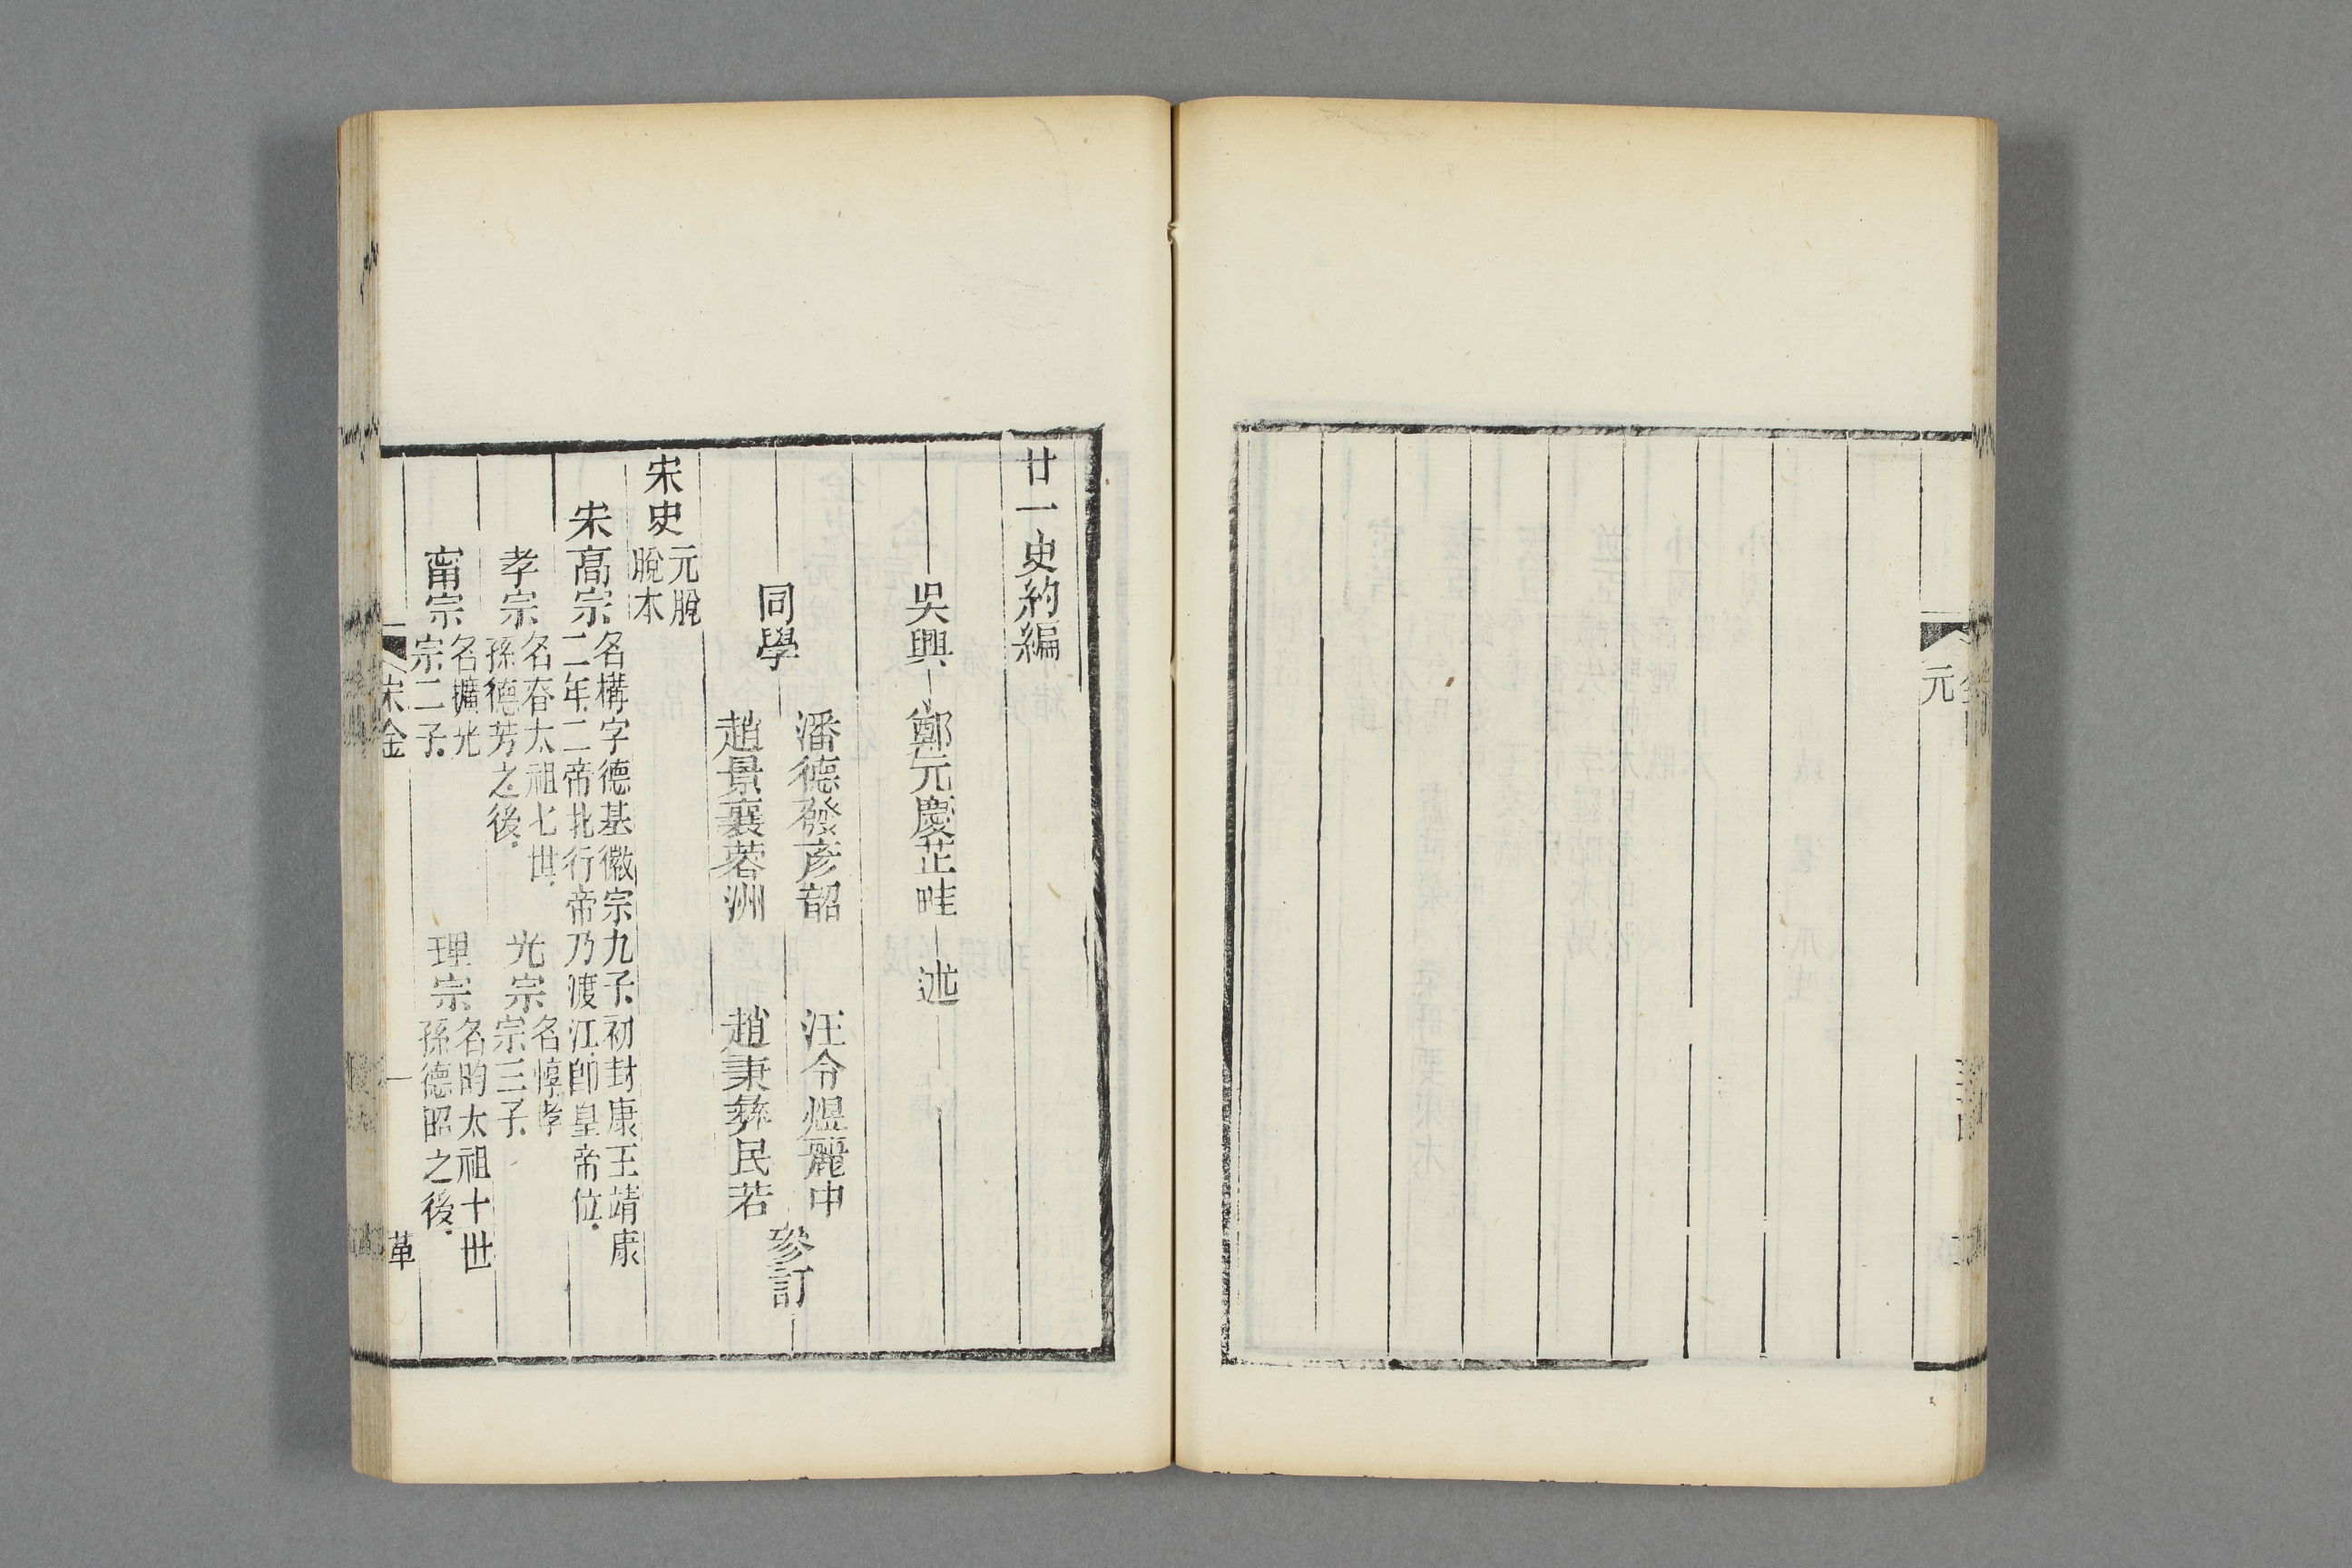 元
廿一史約編
吳興 鄭元慶芷畦 述
同學
潘德發彥韶 汪令煜麗中
趙景襄蓉洲 趙秉彜民若
參訂
宋史 元脫
脫本
宋高宗 名構字德基徽宗九子初封康王靖康
二年二帝北行帝乃渡江卽皇帝位
孝宗 名眘太祖七世
孫德芳之後
光宗 名惇孝
宗三子
甯宗 名擴光
宗二子
理宗 名昀太祖十世
孫德昭之後
宋金 一 革